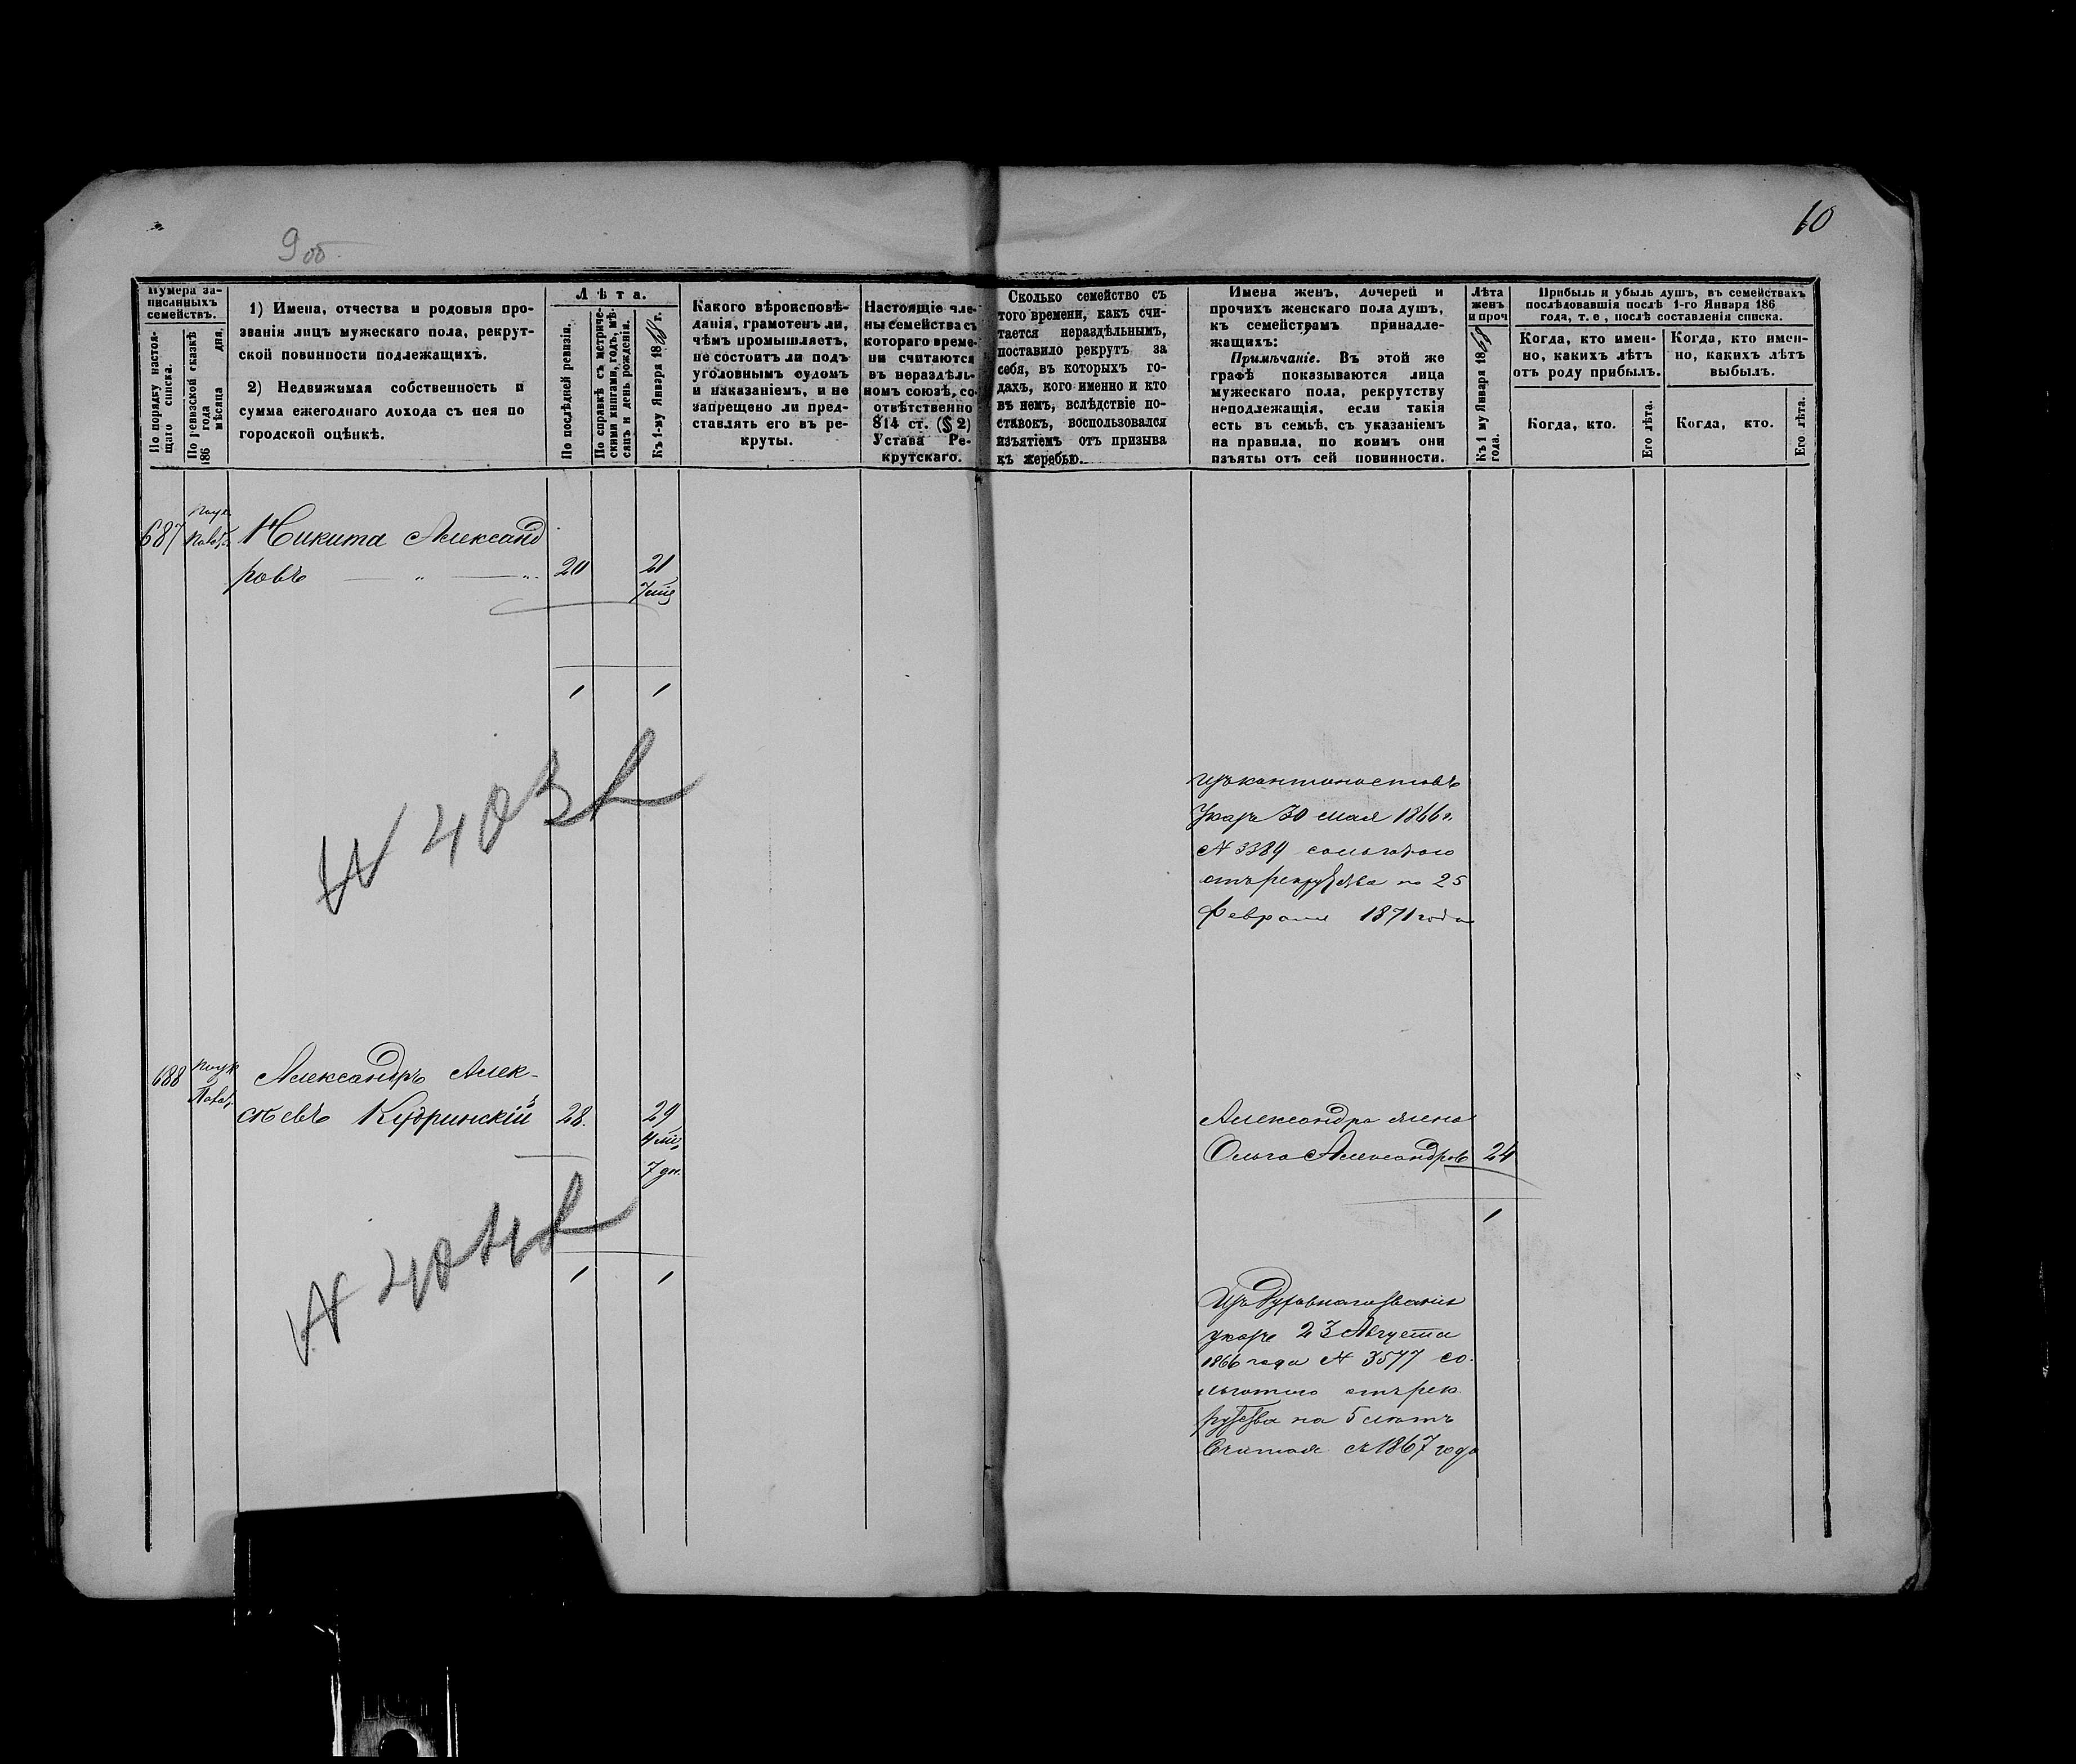 9 об
10
Нумера за-
писанныхъ
семействъ.
По порядку настоя-
щаго списка.
По ревизской сказкѣ
186 года
мѣсяца дня.
1) Имена, отчества и родовыя про-
званія лицъ мужескаго пола, рекрут-
ской повинности подлежащихъ.
2) Недвижимая собственность и
сумма ежегоднаго дохода съ нея по
городской оцѣнкѣ.
Лѣта.
По послѣдней ревизіи.
По справкѣ съ метриче-
скими книгами, годъ, мѣ-
сяцъ и день рожденія.
Къ 1-му Января 1868 г.
Какого вѣроисповѣ-
данія, грамотенъ ли,
чѣмъ промышляетъ,
не состоитъ ли подъ
уголовнымъ судомъ
и наказаніемъ, и не
запрещено ли пред-
ставлять его въ ре-
круты.
Настоящіе чле-
ны семейства съ
котораго време-
ни считаются
въ нераздѣль-
номъ союзѣ, со-
отвѣтственно
814 ст. (§ 2)
Устава Ре-
крутскаго.
Сколько семейство съ
того времени, какъ счи-
тается нераздѣльнымъ,
поставило рекрутъ за
себя, въ которыхъ го-
дахъ, кого именно и кто
въ немъ, вслѣдствіе по-
ставокъ, воспользовался
изъятіемъ отъ призыва
къ жеребью.
Имена женъ, дочерей и
прочихъ женскаго пола душъ,
къ семействамъ принадле-
жащихъ:
Примѣчаніе. Въ этой же
графѣ показываются лица
мужескаго пола, рекрутству
неподлежащія, если такія
есть въ семьѣ, съ указаніемъ
на правила, по коимъ они
изъяты отъ сей повинности.
Лѣта
женъ
и проч
Къ 1 му Января 1868
года.
Прибыль и убыль душъ, въ семействахъ
послѣдовавшія послѣ 1-го Января 186
года, т. е., послѣ составленія списка.
Когда, кто имен-
но, какихъ лѣтъ
отъ роду прибылъ.
Когда, кто.
Его лѣта.
Когда, кто имен-
но, какихъ лѣтъ
выбылъ.
Когда, кто.
Его лѣта.
687
Никита Александ
ровъ
20
21
7 мц
1
1
N 403
изъ кантонистовъ
Указъ 30 мая 1866 г.
N 3389 сольготою
отъ рекрутства по 25
Февраля 1871 года
688
Александръ Алек-
сѣевъ Кудринскій
28.
29
4 мц
7 дн.
Александра жена
Ольга Александров
24
1
N 404
1
1
Изъ Духовнаго званія
указъ 23 Августа
1866 года N 3577 со
льготою отъ рек
рутства на 5 лѣтъ
Считая съ 1867 года